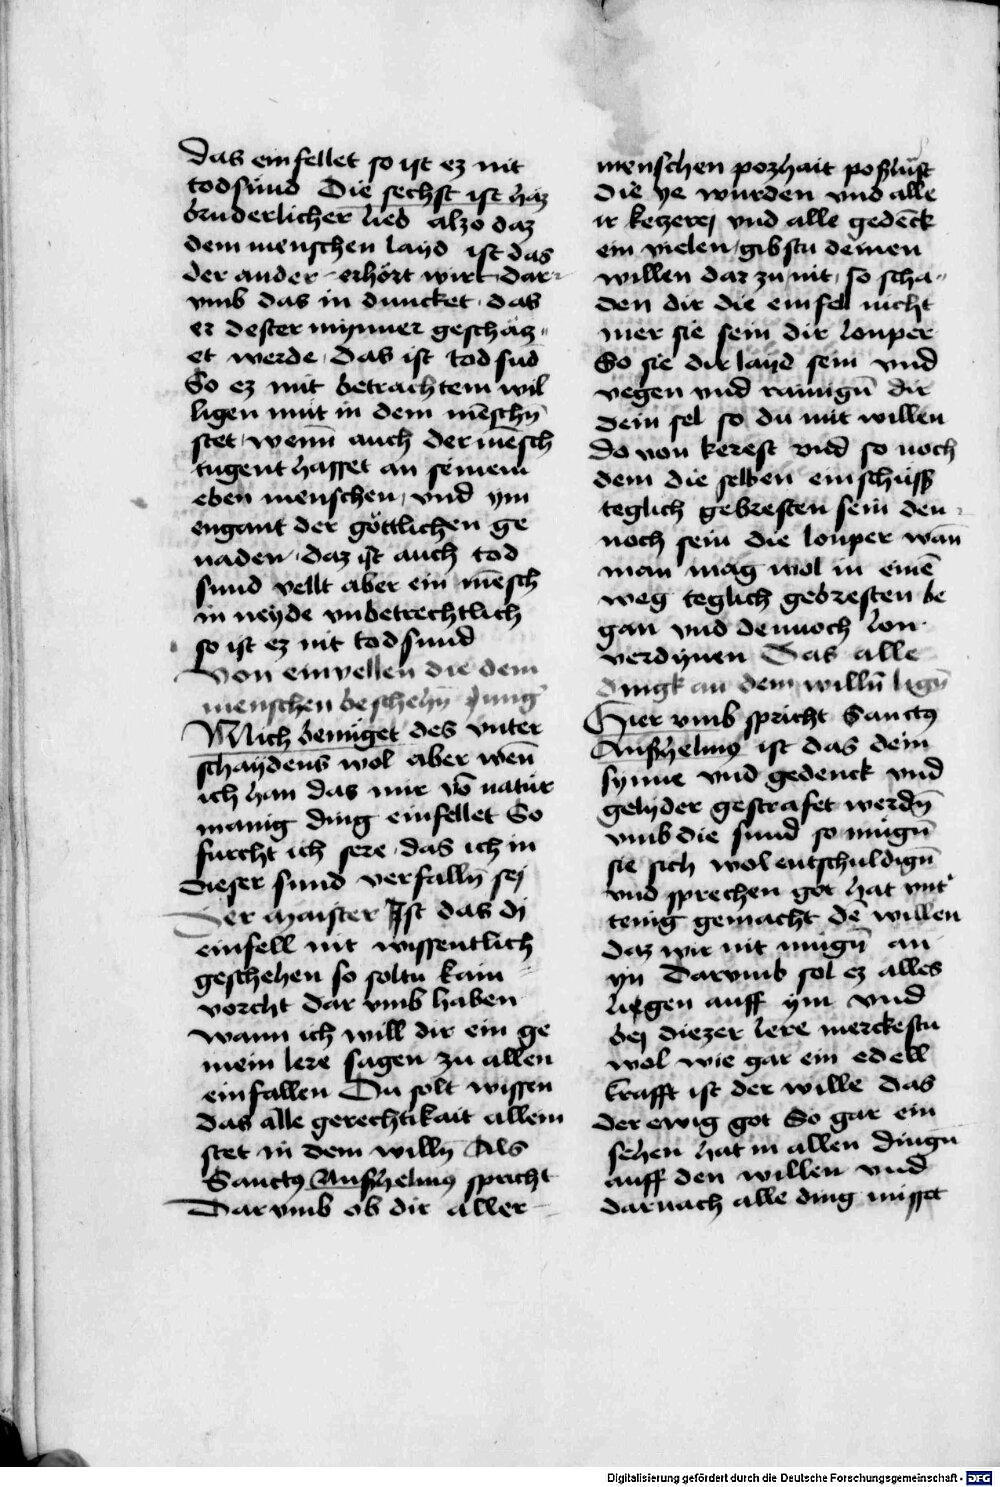 das einfellet so ist ez nit
todsünd Die sechst ist haz
bruderlicher lieb alzo daz
dem menschen layd ist das
der ander erhört wirt dar-
vmb das in duncket das
er dester mynner geschäcz-
et werde das ist tod sūd
So ez mit betrachtem wil
ligen müt in dem mēschn̄
stet wenn̄ auch der mēsch
tugent hasset an seinem
eben menschen vnd ym
engant der göttlichen ge
naden daz ist auch tod
sund vellt aber ein mēsch
in neyde vnbetrechtlich
so ist ez nit todsund
Von einvellen die dem
menschen beschehn̄
Mich benüget des vnter
schaydens wol aber wen̄
ich han das mir vō natur
manig ding einfellet So
fürcht ich sere das ich in
dieser sund verfalln̄ sej
Der maister Ist das dj
einfell nit wissentlich
geschehen so soltu kain
vorcht dar vmb haben
wann ich will dir ein ge
mein lere sagen zu allen
einfallen Du solt wissen
das alle gerechtikait allein
stet in dem willn̄ Als
Sanctus Anshelmus spricht
Dar vmb ob dir aller
menschen pozhait poßlüst
die ye wurden vnd alle
ir keczerej vnd alle gedēck
ein vielen gibstu deinen
willen dar zu nit so scha-
den dir die einfel nicht
mer sie sein dir lonper
So sie dir layd sein vnd
vegen vnd rainign̄ dir
dein sel so du mit willen
do von kerest vnd so noch
dem die selben einschüss
teglich gebresten sein den-
noch sein die lonper wan̄
man mag wol in einē
weg teglich gebresten be
gan vnd dennoch lon
verdynen Das alle
dingk an dem willn̄ lign̄
Hier vmb spricht Sanctus
Anshelmus ist das dein
synne vnd gedenck vnd
gelyder gestrafet werdn̄
vmb die sund so mügn̄
sie sich wol entschuldign̄
vnd sprechen got hat vnt'
tenig gemacht dē willen
daz wir nit mügn̄ an
yn Darvmb sol ez alles
ligen auff ym vnd
bej diezer lere merckestu
wol wie gar ein edell
krafft ist der wille das
der ewig got So gar ein
sehen hat in allen dingn̄
auff den willen vnd
darnach alle ding misset
Digitalisierung gefördert durch die Deutsche Forschungsgemeinschaft - DFG